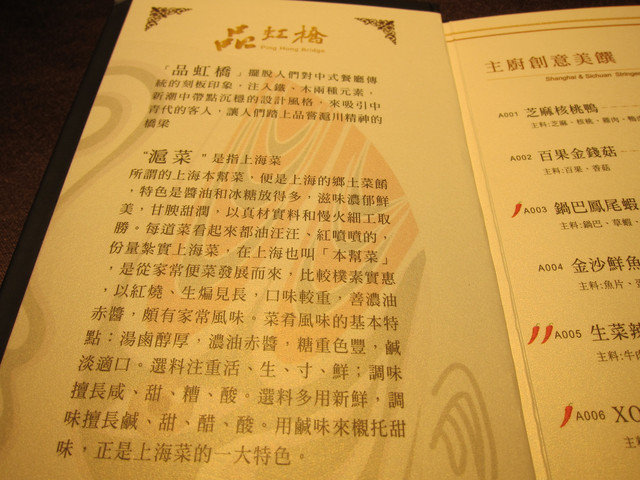 品虹橋
Ping Hong Bridge
「品虹橋」擺脫人們對中式餐廳傳
統的刻板印象,注入鐵、木兩種元素,
新潮中帶點沉穩的設計風格,來吸引中
青代的客人,讓人們踏上品嘗滬川精神的
橋梁
"滬菜"是指上海菜
所謂的上海本幫菜,便是上海的鄉土菜餚
,特色是醬油和冰糖放得多,滋味濃郁鮮
美,甘腴甜潤,以真材實料和慢火細工取
勝。每道菜看起來都油汪汪、紅噴噴的,
份量紮實上海菜,在上海也叫「本幫菜」
,是從家常便菜發展而來,比較樸素實惠
,以紅燒、生煸見長,口味較重,善濃油
赤醬,頗有家常風味。菜肴風味的基本特
點:湯鹵醇厚,濃油赤醬,糖重色豐,鹹
淡適口。選料注重活、生、寸、鮮;調味
擅長咸、甜、糟、酸。選料多用新鮮,調
味擅長鹹、甜、醋、酸。用鹹味來襯托甜
味,正是上海菜的一大特色。
主廚創意美饌
Shanghai & Sichuan
A001 芝麻核桃鴨
主料:芝麻、核桃、雞肉、鴨
A002 百果金錢菇
主料:百果、香菇
A003 鍋巴鳳尾蝦
主料:鍋巴、草蝦、
A004 金沙鮮魚
主料:魚片、
A005 生菜辣
主料:牛肉
A006 XO
主